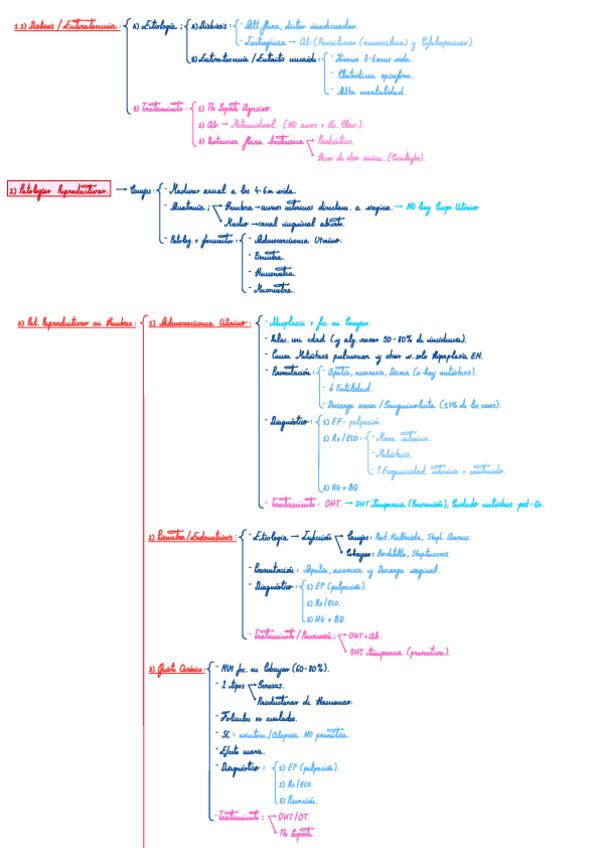 1.2) Disbiosis / Enterotoxemia:
A) Etiología:
A) Disbiosis:
- Alt flora, dietas inadecuadas.
- Iatrogénica → Ab (Penicilinas (amoxicilina) y Cefalosporinas).
B) Enterotoxemia / Enteritis mucoide:
- Jóvenes 3-6 sms vida.
- Clostridium spiroforme.
- Alta mortalidad.
B) Tratamiento:
1) Tto Soporte Agresivo.
2) Ab → Metronidazol. (NO amox + Ác. Clav.).
3) Restaurar flora bacteriana
Probióticos.
Heces de otros anim. (Cecotrofos).
2) Patologías Reproductoras.
→ Conejos:
- Madurez sexual a los 4-6 m vida.
- Anatomía:
Hembra → cuernos uterinos directam. a vagina. → NO hay Cuerpo Uterino
Macho → canal inguinal abierto.
- Patolog. + frecuentes:
- Adenocarcinoma Uterino.
- Piometra.
- Hemometra.
- Mucometra.
A) Pat. Reproductoras en Hembras:
1) Adenocarcinoma Uterino:
- Neoplasia + fec. en Conejas.
- Relac. con edad (y alg. razas 50-80% de incidencia).
- Causa Metástasis pulmonar y otros
- Presentación:
- Apatía, anorexia, Disnea (si hay metástasis).
- ↓ Fertilidad.
- Descarga serosa / Sanguinolenta
- Diagnóstico:
1) EF: palpación.
2) Rx / ECO:
- Masa uterina.
- Metástasis.
- ↑ Ecogenicidad uterina + contenido.
3) HG + BQ.
- Tratamiento: OHT. → OHT temprana (Prevención), Cuidado metástasis post-Qx.
2) Piometra / Endometritis:
- Etiología → Infección
Conejos: Past. Multocida, Staph. Aureus.
Cobayas: Bordetella, Streptococcus.
- Presentación: Apatía, anorexia y Descarga vaginal.
- Diagnóstico:
1) EF (palpación).
2) Rx / ECO.
3) HG + BQ.
- Tratamiento / Prevención:
OHT + Ab.
OHT temprana (preventiva).
3) Quistes Ováricos:
- MUY fec. en Cobayas (60-80%).
- 2 tipos
Serosos.
Productores de Hormonas.
- Folículos no ovulados.
- SC: Alopecia NO prurítica.
- Efecto masa.
- Diagnóstico:
1) EF (palpación).
2) Rx / ECO.
3) Punción.
- Tratamiento:
OHT / OT.
Tto Soporte.